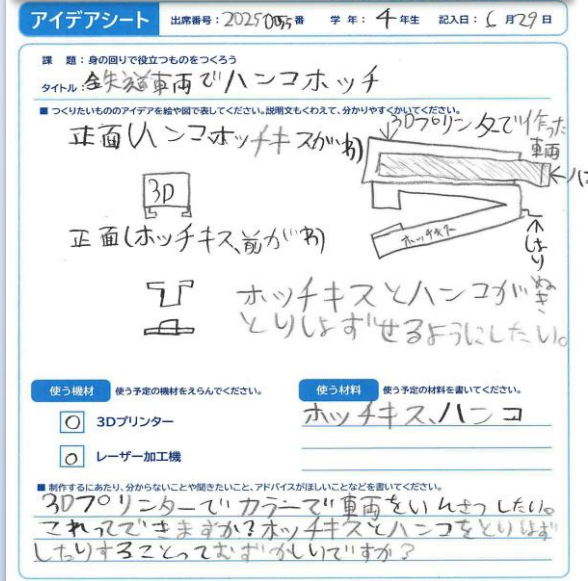 アイデアシート 出席番号：20250055番 学年：4年生 記入日：6月29日
課題：身の回りで役立つものをつくろう
タイトル：鉄道車両でハンコホッチ
■ つくりたいもののアイデアを絵や図で表してください。説明文もくわえて、分かりやすくかいてください。
正面(ハンコホッチキスがわ)
3Dプリンターで作った
車両
←ハン
3D
ホッチキス
←はり
正面(ホッチキス、前がわ)
ぬき
ホッチキスとハンコが
とりはずせるようにしたい。
使う機材 使う予定の機材をえらんでください。
○ 3Dプリンター
○ レーザー加工機
使う材料 使う予定の材料を書いてください。
ホッチキス、ハンコ
■ 制作するにあたり、分からないことや聞きたいこと、アドバイスがほしいことなどを書いてください。
3Dプリンターでカラーで車両をいんさつしたい。
これってできますか？ホッチキスとハンコをとりはず
したりすることってむずかしいですか？